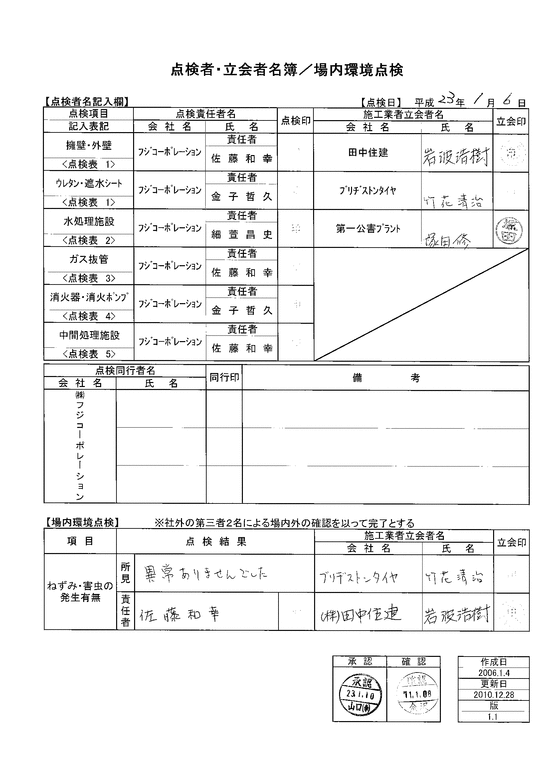 点検者・立会者名簿／場内環境点検
【点検者名記入欄】 【点検日】 平成 23年 1月 6日
点検項目 点検責任者名 点検印 施工業者立会者名 立会印
記入表記 会社名 氏名 会社名 氏名
擁壁・外壁 フジコーポレーション 責任者 田中住建 岩波浩樹
<点検表 1> 佐藤和幸
ウレタン・遮水シート フジコーポレーション 責任者 ブリヂストンタイヤ 竹花清治
<点検表 1> 金子哲久
水処理施設 フジコーポレーション 責任者 第一公害プラント 塚田修
<点検表 2> 細萱昌史
ガス抜管 フジコーポレーション 責任者
<点検表 3> 佐藤和幸
消火器・消火ポンプ フジコーポレーション 責任者
<点検表 4> 金子哲久
中間処理施設 フジコーポレーション 責任者
<点検表 5> 佐藤和幸
点検同行者名 同行印 備考
会社名 氏名
㈱フジコーポレーション
【場内環境点検】 ※社外の第三者2名による場内外の確認を以って完了とする
項目 点検結果 施工業者立会者名 立会印
会社名 氏名
ねずみ・害虫の発生有無 所見 異常ありませんでした ブリヂストンタイヤ 竹花清治
責任者 佐藤和幸 (株)田中住建 岩波浩樹
承認 確認 作成日
2006.1.4
承認 更新日
23.1.10 11.1.08 2010.12.28
山口 版
1.1